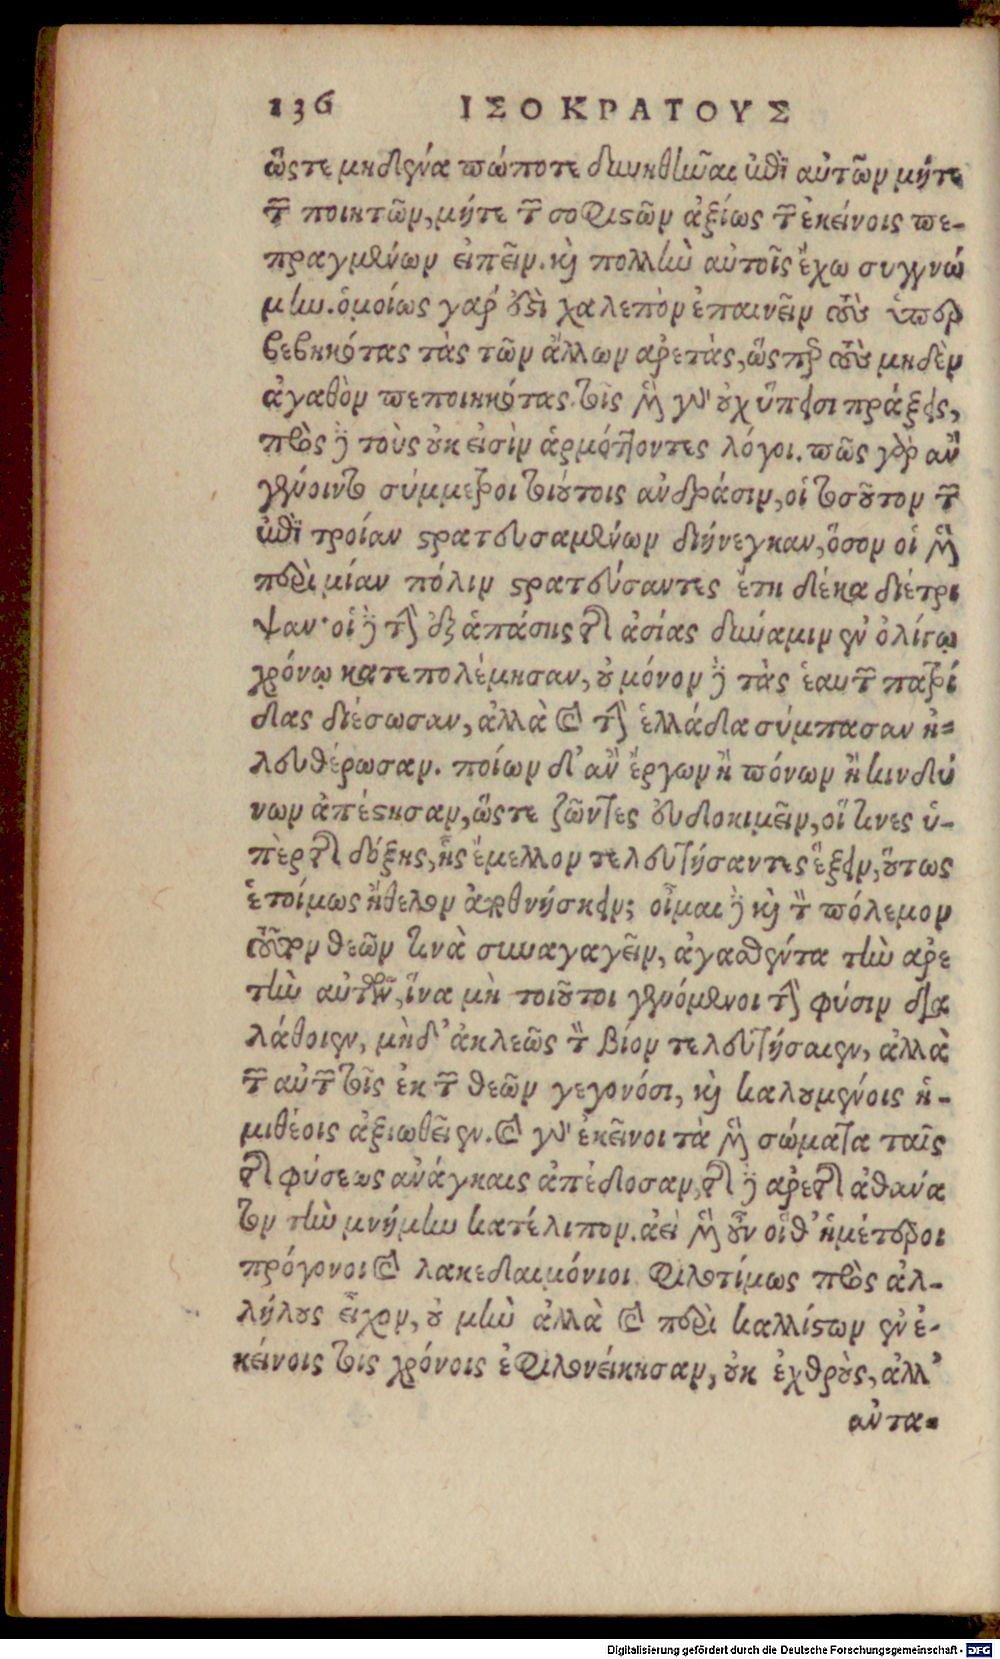 136 ΙΣΟΚΡΑΤΟΥΣ
ὥςτε μηδένα πώποτε δυνηθῆναι ἐπὶ αὐτῶν μήτε
τῶν ποιητῶν, μήτε τῶν σοφιστῶν ἀξίως τῶν ἐκείνοις πε-
πραγμένων εἰπεῖν. καὶ πολλὴν αὐτοῖς ἔχω συγγνώ
μην. ὁμοίως γάρ ἐστι χαλεπὸν ἐπαινεῖν τοὺς ὑπερ
βεβηκότας τὰς τῶν ἄλλων ἀρετὰς, ὥςπερ τοὺς μηδὲν
ἀγαθὸν πεποιηκότας. τοῖς μὲν γὰρ οὐχ ὕπεισι πράξεις,
πρὸς δὲ τοὺς οὐκ εἰσὶν ἁρμόττοντες λόγοι. πῶς γὰρ ἂν
γένοιντο σύμμετροι τοιούτοις ἀνδράσιν, οἳ τοσοῦτον τῶν
ἐπὶ τροίαν στρατευσαμένων διήνεγκαν, ὅσον οἱ μὲν
περὶ μίαν πόλιν στρατεύσαντες ἔτη δέκα διέτρι
ψαν· οἱ δὲ τὴν ἐξ ἁπάσης τῆς ἀσίας δύναμιν ἐν ὀλίγῳ
χρόνῳ κατεπολέμησαν, οὐ μόνον δὲ τὰς ἑαυτῶν πατρί
δας διέσωσαν, ἀλλὰ καὶ τὴν ἑλλάδα σύμπασαν ἠ-
λευθέρωσαν. ποίων δ' ἂν ἔργων ἢ πόνων ἢ κινδύ
νων ἀπέστησαν, ὥςτε ζῶντες εὐδοκιμεῖν, οἵ τινες ὑ-
πὲρ τῆς δόξης, ἧς ἔμελλον τελευτήσαντες ἕξειν, οὕτως
ἑτοίμως ἤθελον ἀποθνήσκειν; οἶμαι δὲ καὶ τὸν πόλεμον
θεῶν τινὰ συναγαγεῖν, ἀγασθέντα τὴν ἀρε
τὴν αὐτῶν, ἵνα μὴ τοιοῦτοι γενόμενοι τὴν φύσιν δια
λάθοιεν, μηδ' ἀκλεῶς τὸν βίον τελευτήσαιεν, ἀλλὰ
τῶν αὐτῶν τοῖς ἐκ τῶν θεῶν γεγονόσι, καὶ καλουμένοις ἡ-
μιθέοις ἀξιωθεῖεν. καὶ γὰρ ἐκεῖνοι τὰ μὲν σώματα ταῖς
τῆς φύσεως ἀνάγκαις ἀπέδοσαν, τῆς δὲ ἀρετῆς ἀθάνα
τον τὴν μνήμην κατέλιπον. ἀεὶ μὲν οὖν οἵθ' ἡμέτεροι
πρόγονοι καὶ λακεδαιμόνιοι φιλοτίμως πρὸς ἀλ-
λήλους εἶχον, οὐ μὴν ἀλλὰ καὶ περὶ καλλίστων ἐν ἐ-
κείνοις τοῖς χρόνοις ἐφιλονείκησαν, οὐκ ἐχθροὺς, ἀλλ'
αὐτα-
Digitalisierung gefördert durch die Deutsche Forschungsgemeinschaft - DFG